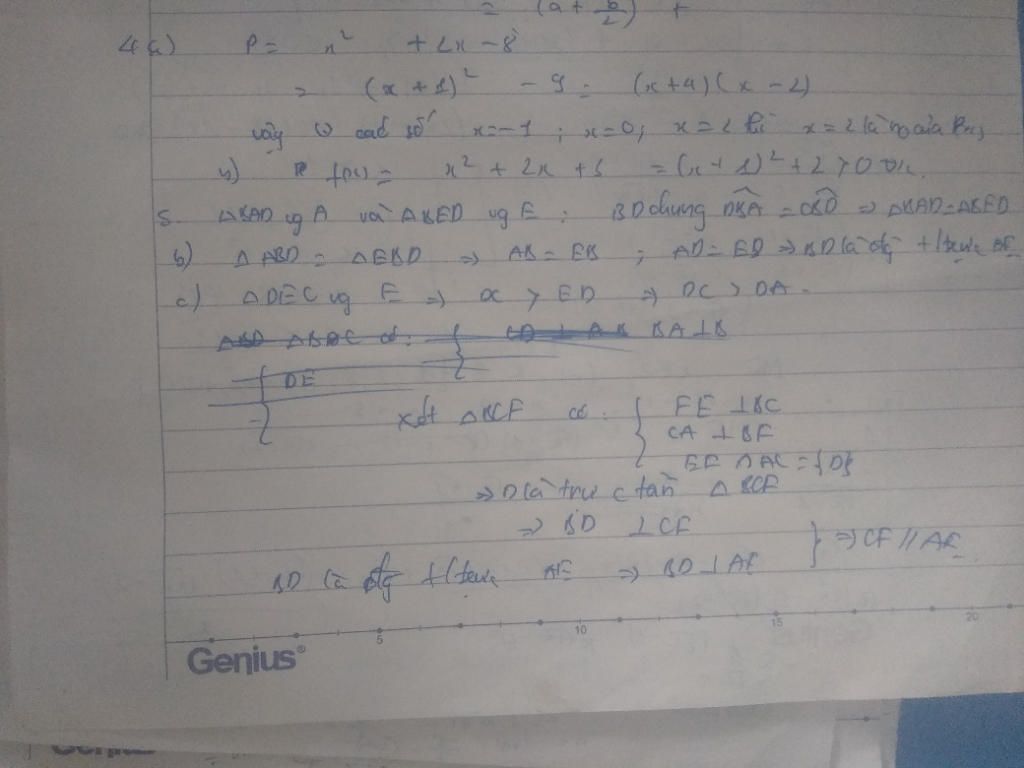 = (a + b/2) +
4 a) P = x² + 2x - 8
= (x + 1)² - 9 = (x+4)(x - 2)
vậy các số x = -1 ; x=0, x = 2 thì x = 2 là no của P(x)
b) f(x) = x² + 2x + 3 = (x + 1)² + 2 > 0
5. ΔBAD vg A và ΔBED vg E ; BD chung DBA = CBD ⇒ ΔBAD = ΔBED
b) ΔABD = ΔEBD ⇒ AB = EB ; AD = ED ⇒ BD là đg tt trực AE
c) ΔDEC vg E ⇒ DC > ED ⇒ DC > DA.
ΔBDC có: { BA ⊥ B
{ DE
Xét ΔBCF có: { FE ⊥ BC
CA ⊥ BF
EF ∩ AC = {D}
⇒ D là trực tâm ΔBCF
⇒ BD ⊥ CF
} ⇒ CF // AE
BD là đg tt trực AE ⇒ BD ⊥ AE
5 10 15 20
Genius®
Genius